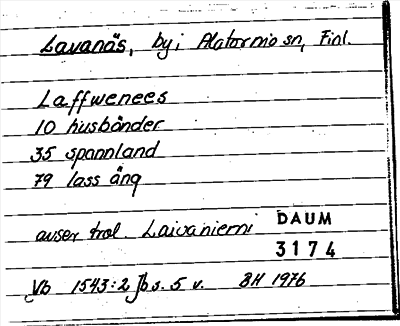 Lavanäs, by i Alatornio sn, Finl.
Laffwenees
10 husbönder
35 spannland
79 lass äng
avser trol. Laivaniemi
DAUM
3174
Vb 1543:2 Jb s. 5 v. BH 1976